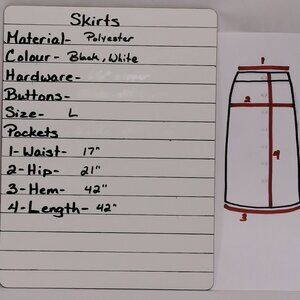 Skirts
Material- Polyester
Colour- Black, White
Hardware-
Buttons-
Size- L
Pockets
1-Waist- 17"
2-Hip- 21"
3-Hem- 42"
4-Length- 42"
1
2
4
3